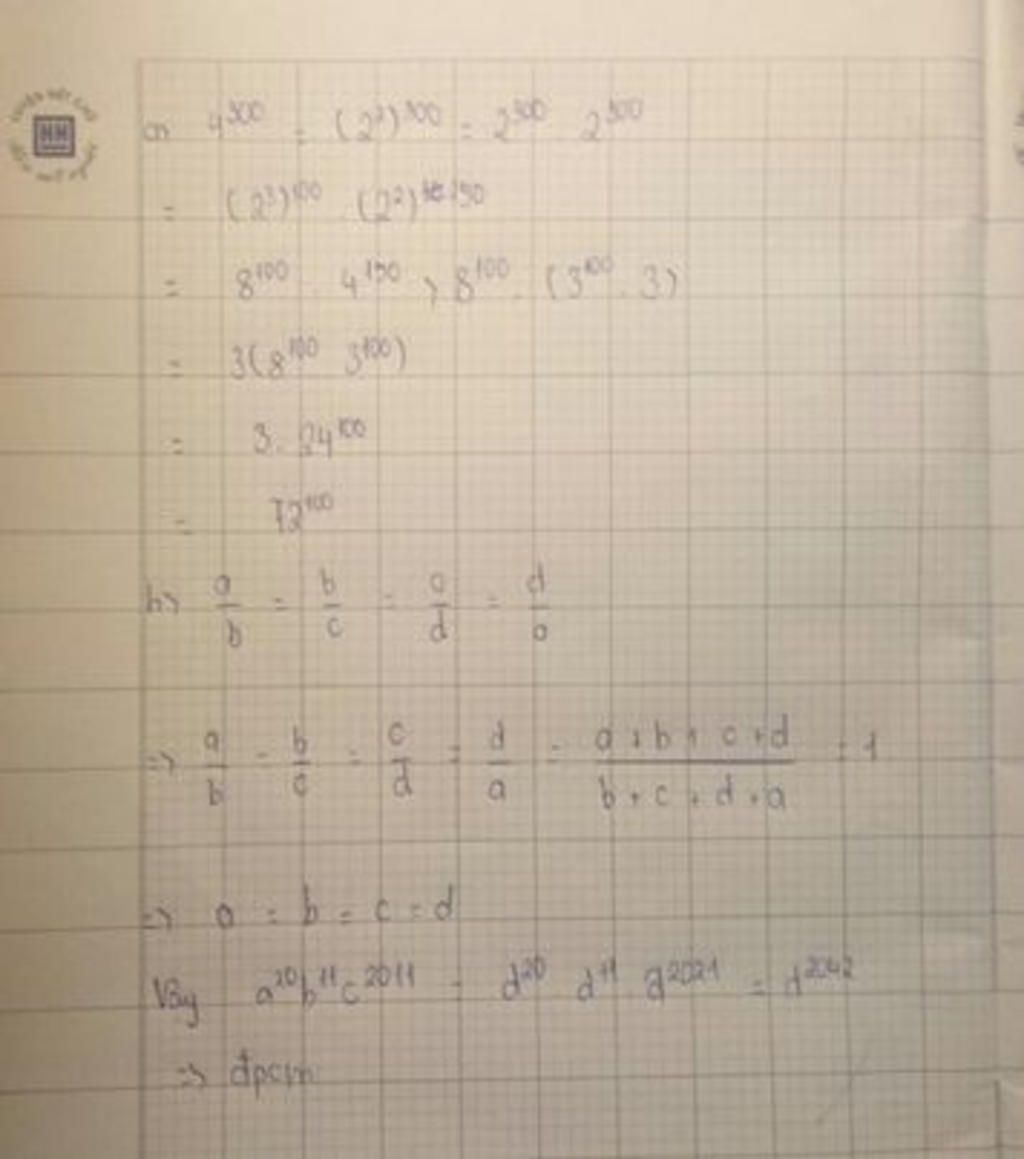 a> 4^300 = (2^2)^300 = 2^300 . 2^300
= (2^3)^100 . (2^2)^150
= 8^100 . 4^150 > 8^100 . (3^100 . 3)
= 3(8^100 . 3^100)
= 3 . 24^100
= 72^100
b> a/b = b/c = c/d = d/a
=> a/b = b/c = c/d = d/a = (a + b + c + d)/(b + c + d + a) = 1
=> a = b = c = d
Vậy a^20 b^11 c^2011 = d^20 d^11 d^2021 = d^2042
=> đpcm